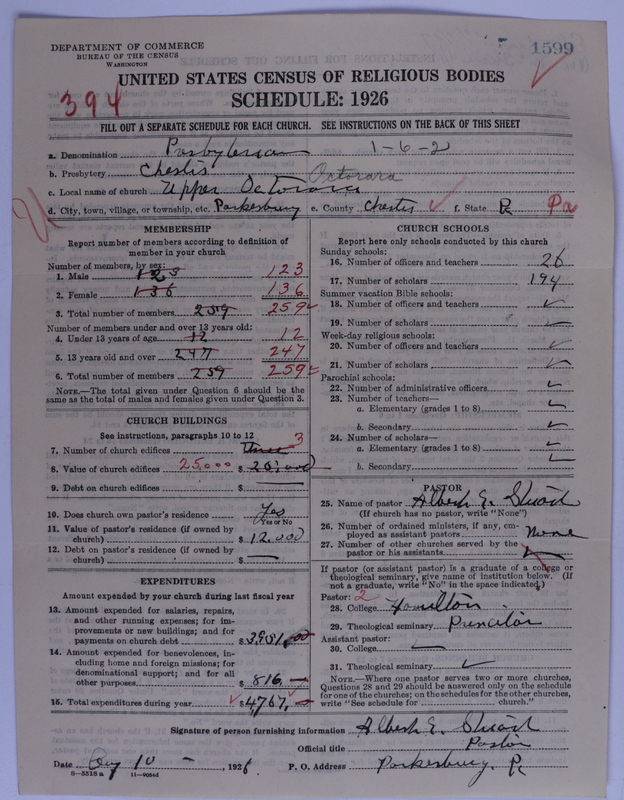 DEPARTMENT OF COMMERCE
BUREAU OF THE CENSUS
WASHINGTON
1599
UNITED STATES CENSUS OF RELIGIOUS BODIES
394
SCHEDULE: 1926
FILL OUT A SEPARATE SCHEDULE FOR EACH CHURCH. SEE INSTRUCTIONS ON THE BACK OF THIS SHEET
a. Denomination Presbyterian 1-6-2
b. Presbytery Chester Octorara
c. Local name of church Upper Octorara
d. City, town, village, or township, etc. Parkesburg e. County Chester f. State Pa Pa
MEMBERSHIP
Report number of members according to definition of
member in your church
Number of members, by sex:
1. Male 123 123
2. Female 136 136
3. Total number of members 259 259
Number of members under and over 13 years old:
4. Under 13 years of age 12 12
5. 13 years old and over 247 247
6. Total number of members 259 259
NOTE.—The total given under Question 6 should be the
same as the total of males and females given under Question 3.
CHURCH BUILDINGS
See instructions, paragraphs 10 to 12
7. Number of church edifices three 3
8. Value of church edifices 25,000 $
9. Debt on church edifices $
10. Does church own pastor's residence Yes
Yes or No
11. Value of pastor's residence (if owned by
church) $ 12,000
12. Debt on pastor's residence (if owned by
church) $
EXPENDITURES
Amount expended by your church during last fiscal year
13. Amount expended for salaries, repairs,
and other running expenses; for im-
provements or new buildings; and for
payments on church debt $ 3951.00
14. Amount expended for benevolences, in-
cluding home and foreign missions; for
denominational support; and for all
other purposes $ 816
15. Total expenditures during year $ 4,767
CHURCH SCHOOLS
Report here only schools conducted by this church
Sunday schools:
16. Number of officers and teachers 26
17. Number of scholars 194
Summer vacation Bible schools:
18. Number of officers and teachers
19. Number of scholars
Week-day religious schools:
20. Number of officers and teachers
21. Number of scholars
Parochial schools:
22. Number of administrative officers
23. Number of teachers—
a. Elementary (grades 1 to 8)
b. Secondary
24. Number of scholars—
a. Elementary (grades 1 to 8)
b. Secondary
PASTOR
25. Name of pastor Albert E. Stuart
(If church has no pastor, write "None")
26. Number of ordained ministers, if any, em-
ployed as assistant pastors None
27. Number of other churches served by the
pastor or his assistants
If pastor (or assistant pastor) is a graduate of a college or
theological seminary, give name of institution below. (If
not a graduate, write "No" in the space indicated.)
Pastor: 2
28. College Hamilton
29. Theological seminary Princeton
Assistant pastor:
30. College
31. Theological seminary
NOTE.—Where one pastor serves two or more churches,
Questions 28 and 29 should be answered only on the schedule
for one of the churches; on the schedules for the other churches,
write "See schedule for church."
Signature of person furnishing information Albert E. Stuart
Official title Pastor
Date Aug 10 , 1926 P. O. Address Parkesburg, Pa
8—5518 a 11—9054d